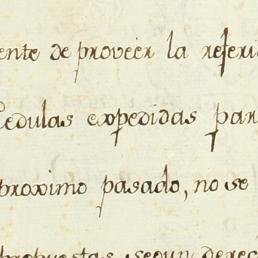 ente de proveer la referi
Cedulas expedidas par
proximo pasado, no se
propuestas, segun derec